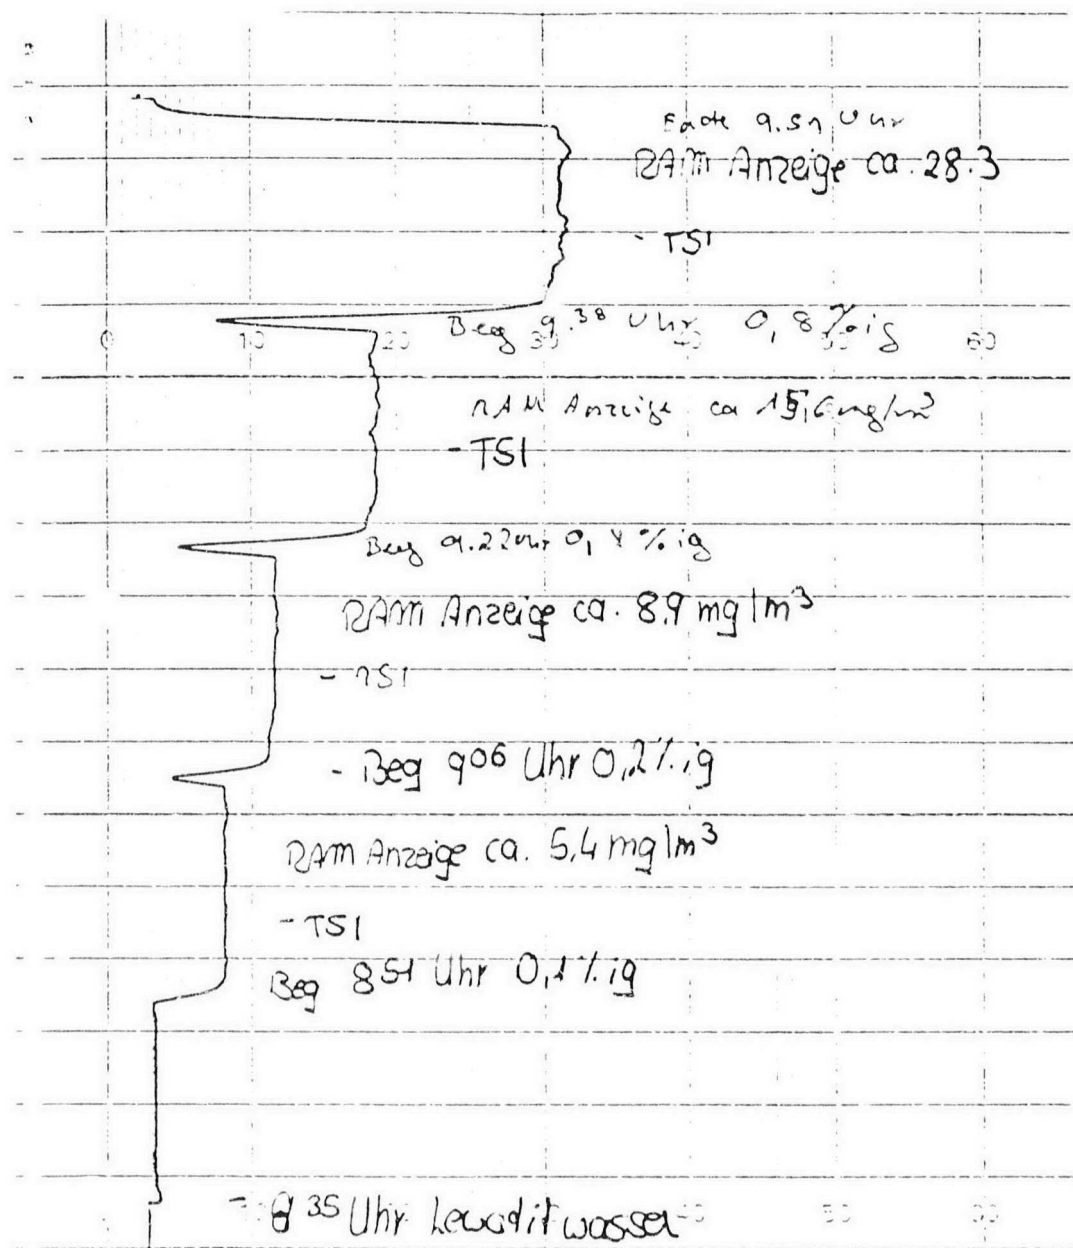 Ende 9.51 Uhr
RAM Anzeige ca. 28.3
- TSI
0 10 20 30 40 50 60
Beg 9.38 Uhr 0,8%ig
RAM Anzeige ca 15,6mg/m³
- TSI
Beg 9.22Uhr 0,4%ig
RAM Anzeige ca. 8,9 mg/m³
- TSI
- Beg 9⁰⁶ Uhr 0,2%ig
RAM Anzeige ca. 5,4 mg/m³
- TSI
Beg 8⁵¹ Uhr 0,1%ig
- 8³⁵ Uhr Lewatitwasser